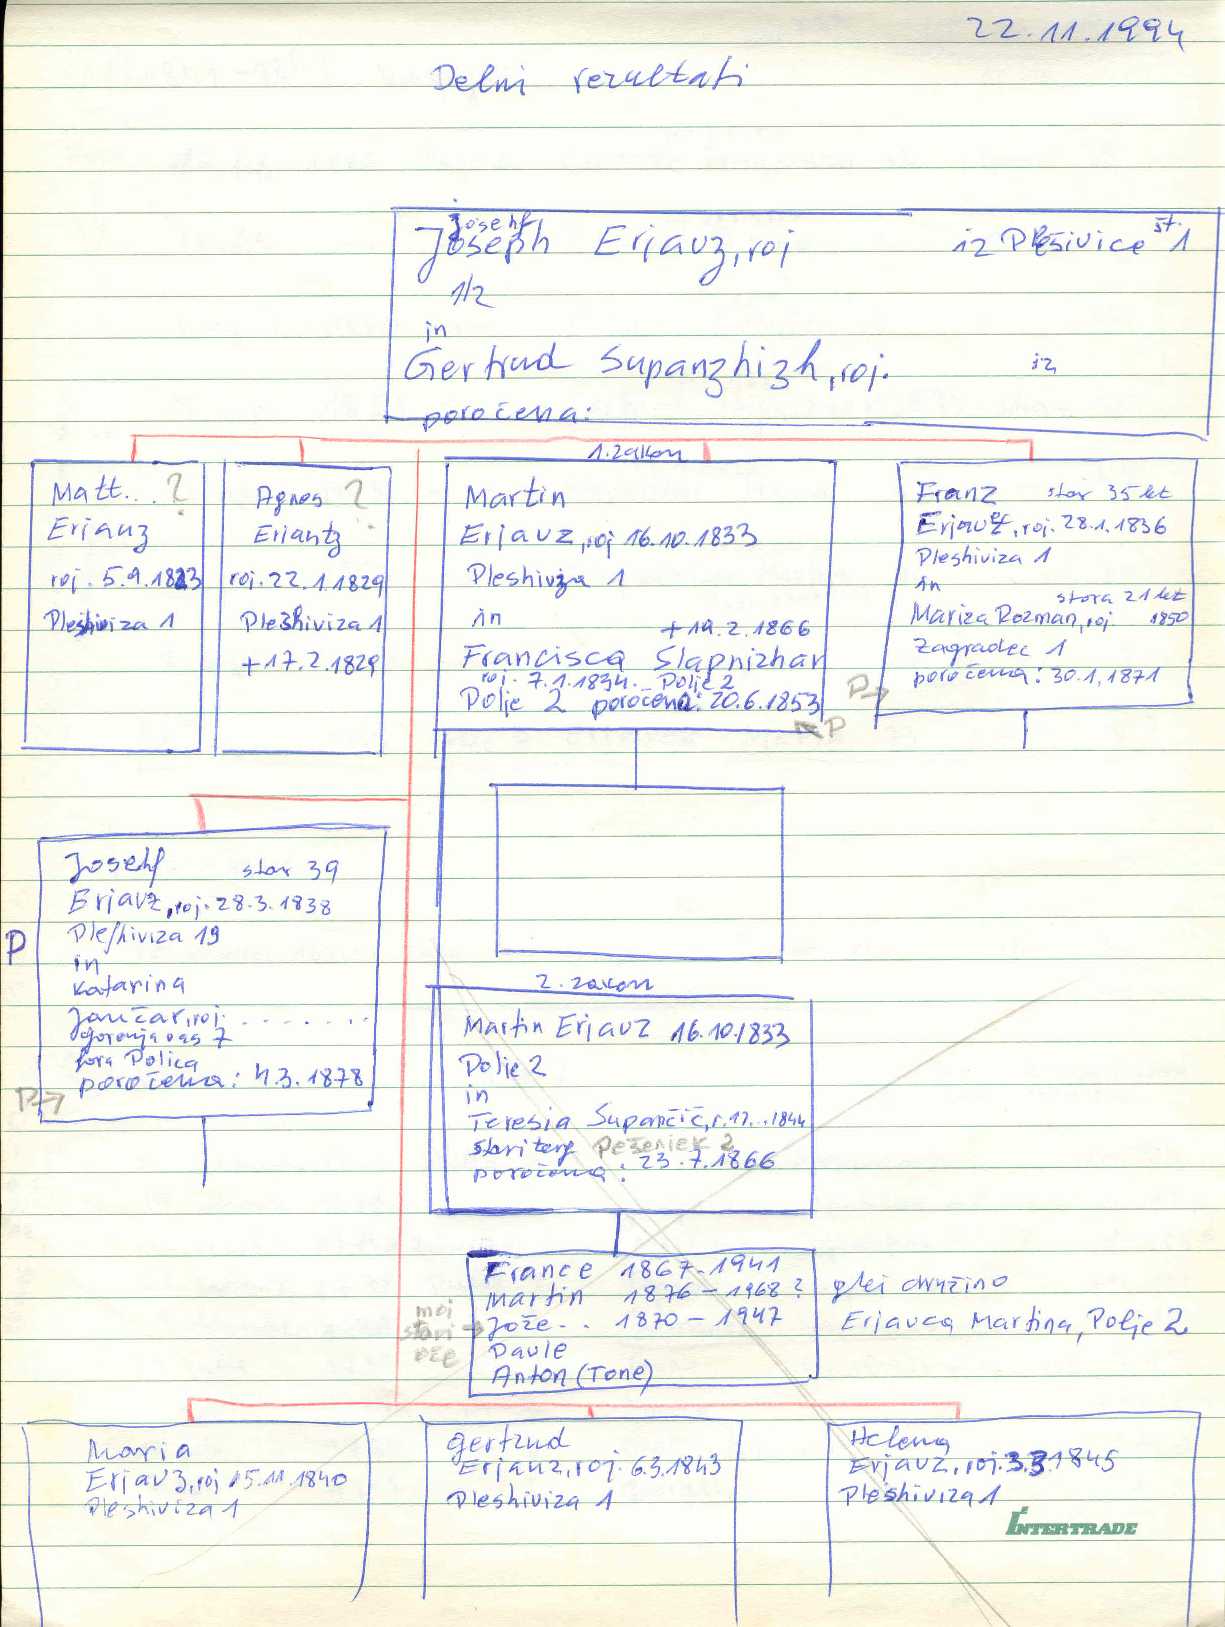 22.11.1994
Delni rezultati
Josehf
Joseph Erjauz, roj iz Plešivice št. 1
1/2
in
Gertrud Supanzhizh, roj. iz
poročena:
Matt... ?
Erjauz
roj. 5.9.1823
Pleshiviza 1
Agnes ?
Eriautz
roj. 22.1.1829
Pleshiviza 1
+17.2.1829
1. zakon
Martin
Erjauz, roj 16.10.1833
Pleshiviza 1
in +19.2.1866
Francisca Slapnizhar
roj. 7.1.1834. Polje 2
Polje 2 poročena: 20.6.1853
P
Franz star 35 let
Erjauz, roj. 28.1.1836
Pleshiviza 1
in
stara 21 let
Mariza Rozman, roj 1850
Zagradec 1
poročena: 30.1.1871
P→
Josehf star 39
Erjauz, roj. 28.3.1838
P Pleshiviza 19
in
Katarina
Jančar, roj. . . . . . . .
gorenja vas 7
fara Polica
poročena: 4.3.1878
P→
2. zakon
Martin Erjauz 16.10.1833
Polje 2
in
Teresia Supančič, r. 17...1844
stari terg Peženiek 2
poročena: 23.7.1866
France 1867-1941
Martin 1876-1968?
Jože.. 1870-1947
Paule
Anton (Tone)
moj
stari →
oče
glej družino
Erjavca Martina, Polje 2
Maria
Erjauz, roj 15.11.1840
Pleshiviza 1
Gertrud
Erjauz, roj. 6.3.1843
Pleshiviza 1
Helena
Erjauz, roj. 3.3.1845
Pleshiviza 1
INTERTRADE